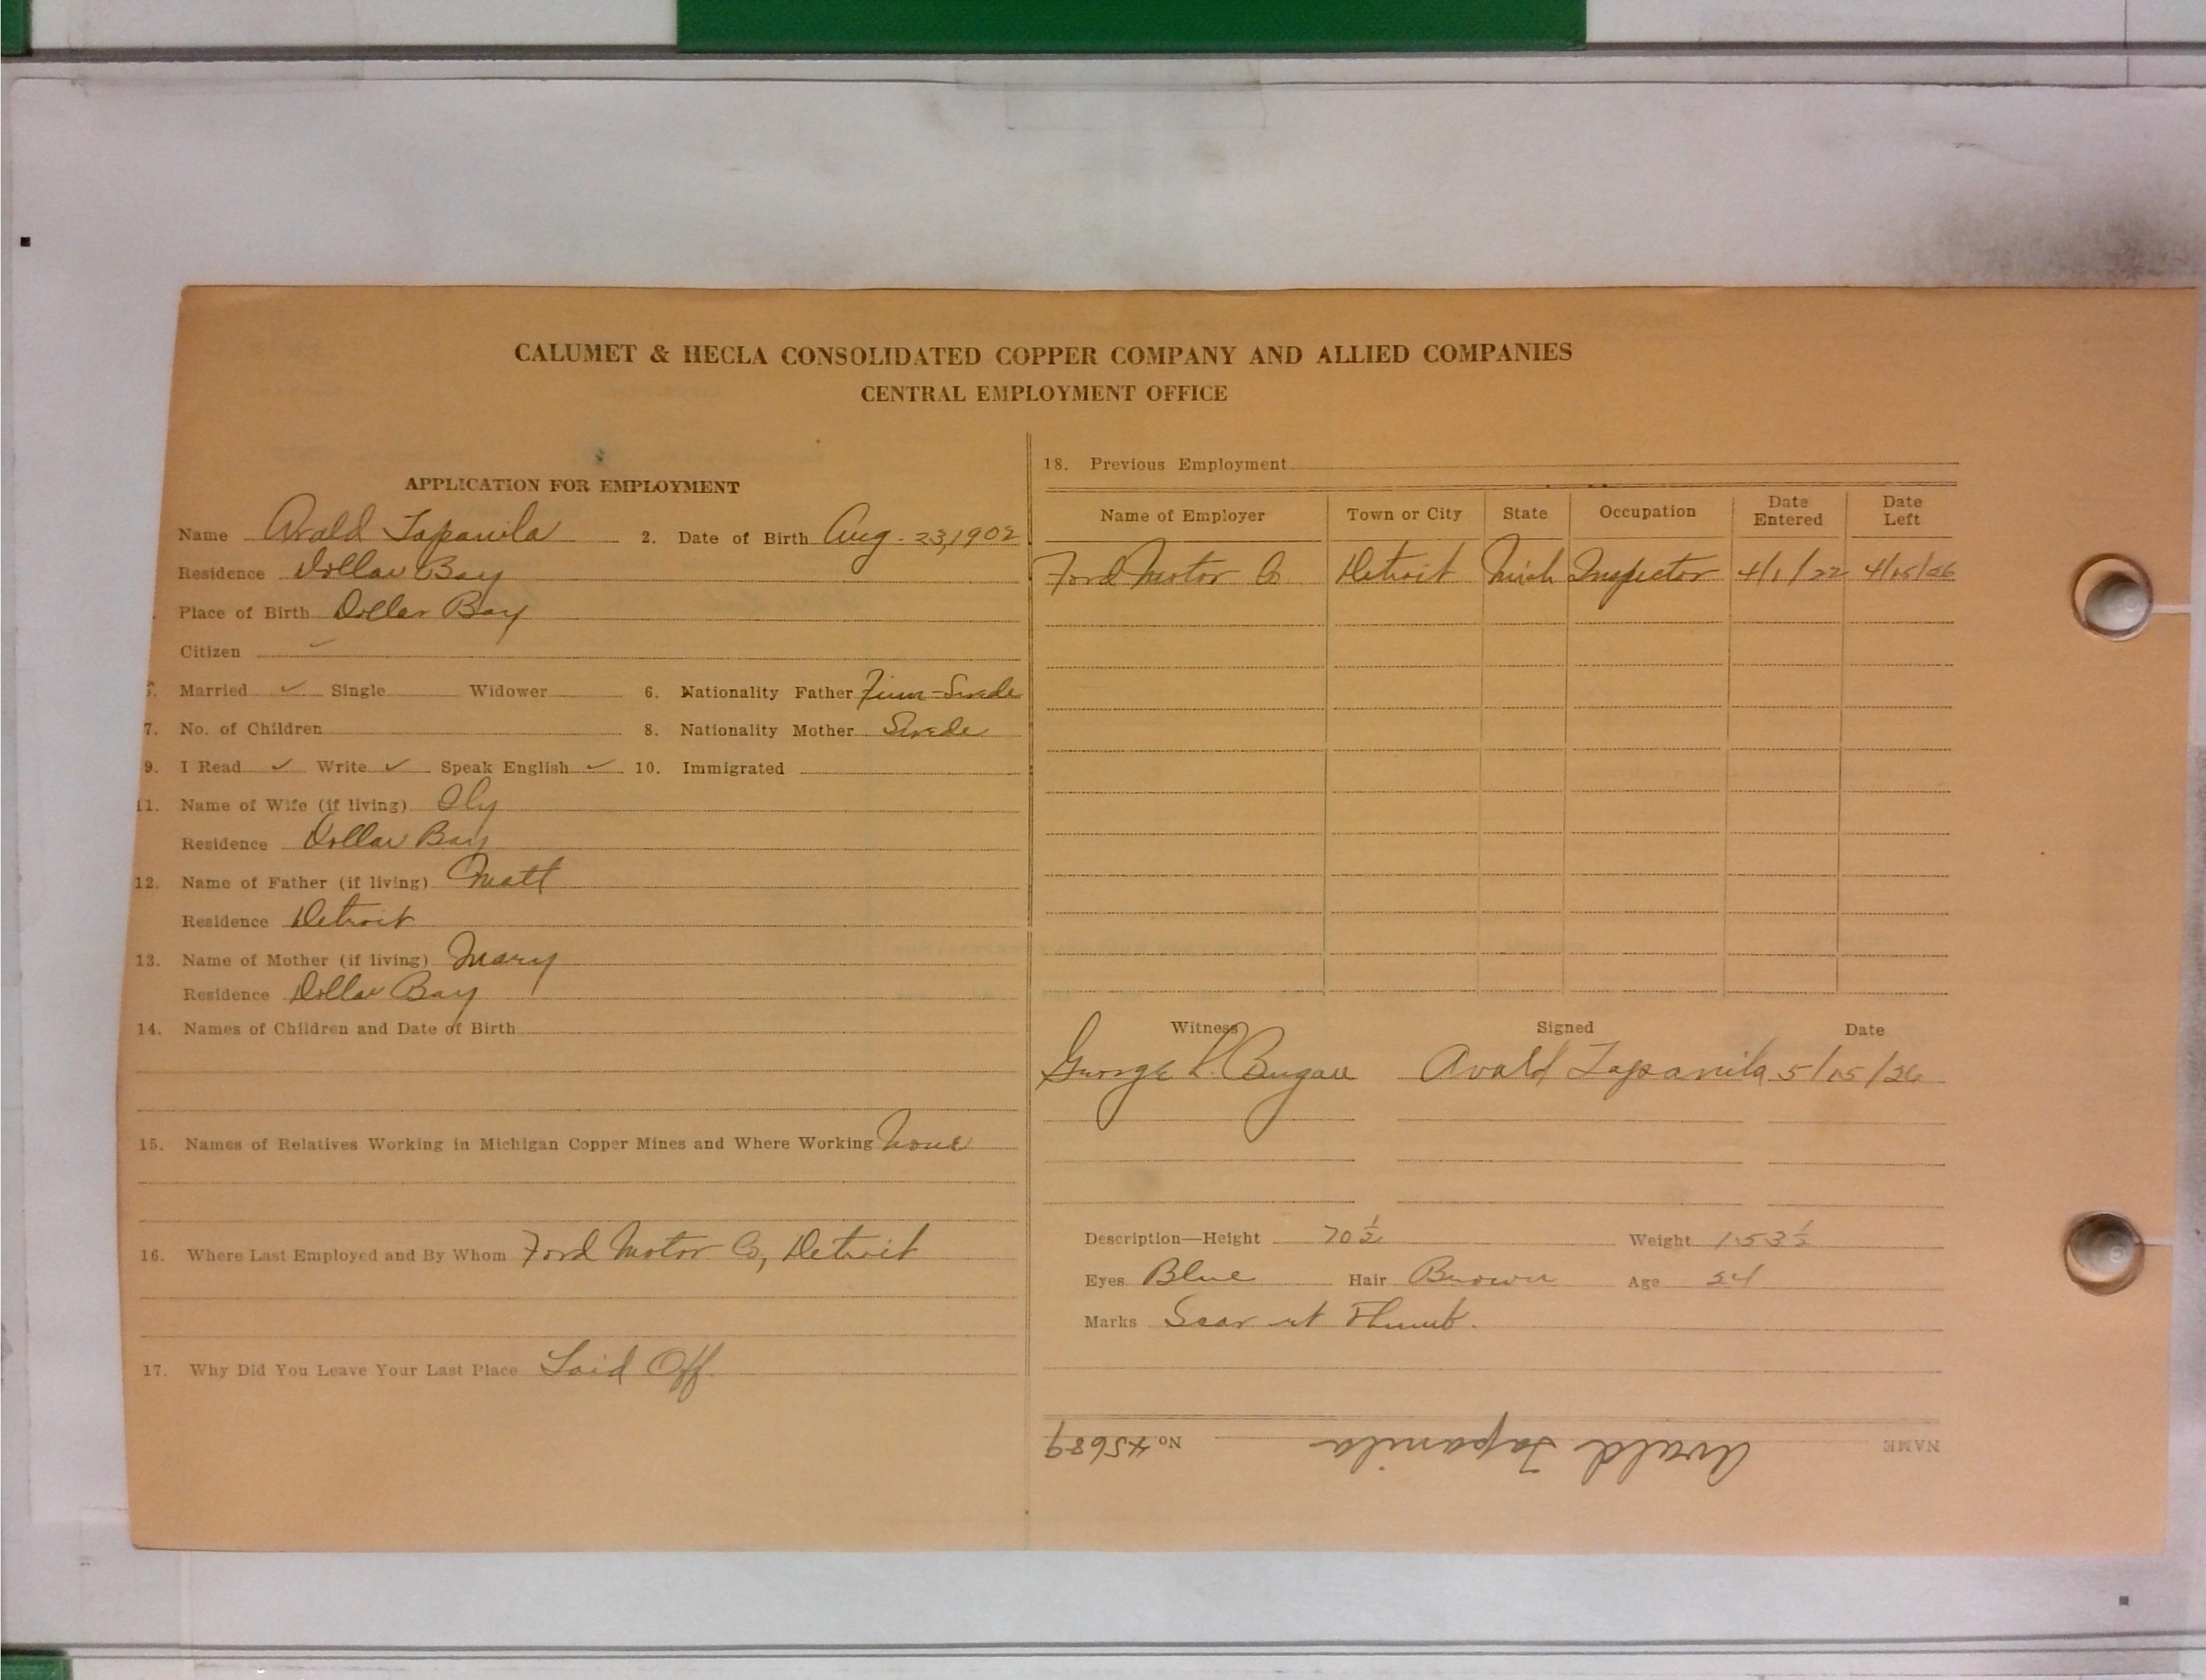 CALUMET & HECLA CONSOLIDATED COPPER COMPANY AND ALLIED COMPANIES
CENTRAL EMPLOYMENT OFFICE
APPLICATION FOR EMPLOYMENT
Name Avald Tapanila 2. Date of Birth Aug. 23, 1902
Residence Dollar Bay
Place of Birth Dollar Bay
Citizen ✓
5. Married ✓ Single Widower 6. Nationality Father Finn-Swede
7. No. of Children 8. Nationality Mother Swede
9. I Read ✓ Write ✓ Speak English ✓ 10. Immigrated
11. Name of Wife (if living)
Residence Dollar Bay
12. Name of Father (if living) Matt
Residence Detroit
13. Name of Mother (if living) Mary
Residence Dollar Bay
14. Names of Children and Date of Birth
15. Names of Relatives Working in Michigan Copper Mines and Where Working None
16. Where Last Employed and By Whom Ford Motor Co, Detroit
17. Why Did You Leave Your Last Place Laid Off.
18. Previous Employment
Name of Employer Town or City State Occupation Date Entered Date Left
Ford Motor Co Detroit Mich Inspector 4/1/22 4/15/26
Witness Signed Date
George L. Avald Tapanila 5/15/26
Description—Height 70 ½ Weight 153 ½
Eyes Blue Hair Brown Age 24
Marks Scar Thumb.
NAME Avald Tapanila No. 45689